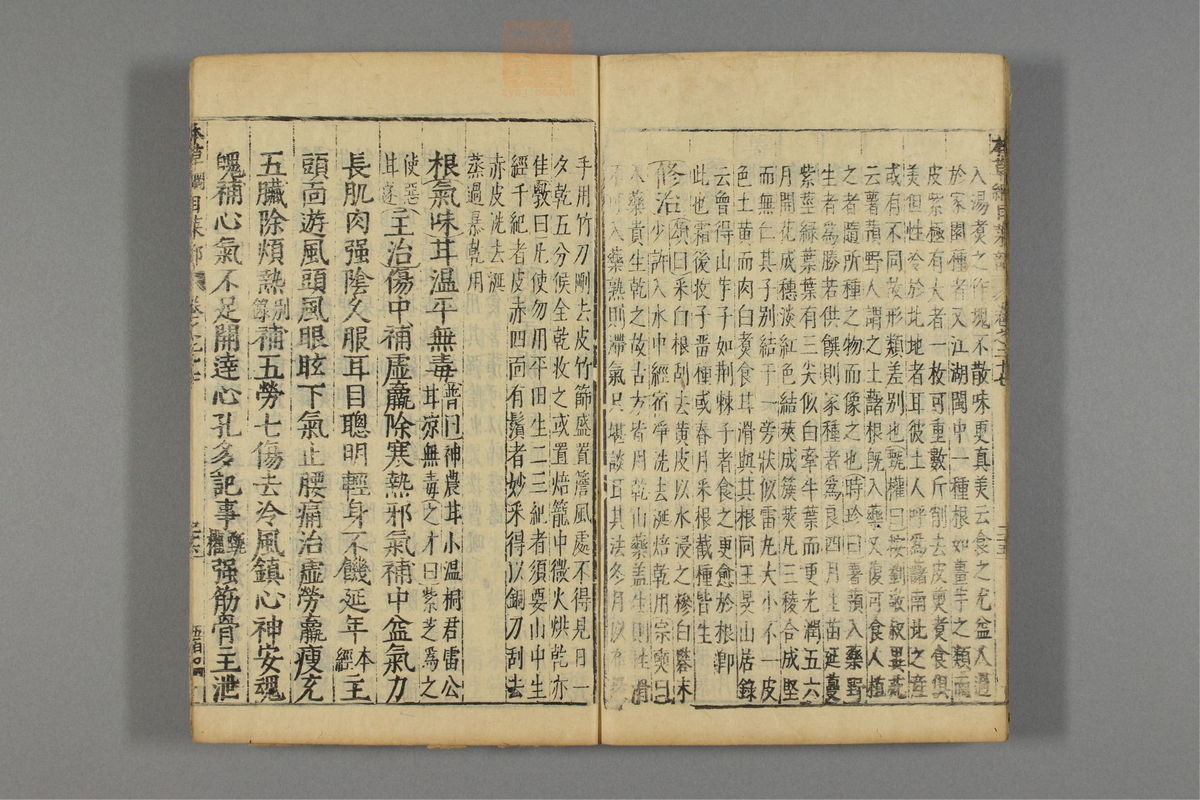 入湯煑之作塊不散味更真美云食之尤益人過
於家園種者又江湖閩中一種根如薑芋之類而
皮紫極有大者一枚可重數斤削去皮煎煑食俱
美但性冷於北地者耳彼土人呼爲藷南北之產
或有不同故形類差別也甄權曰按劉敬叔異苑
云薯蕷野人謂之土藷根旣入藥又復可食人植
之者隨所種之物而像之也時珍曰薯蕷入藥野
生者爲勝若供饌則家種者爲良四月生苗延蔓
紫莖綠葉葉有三尖似白牽牛葉而更光潤五六
月開花成穗淡紅色結莢成簇莢凡三稜合成堅
而無仁其子別結于一旁狀似雷丸大小不一皮
色土黃而肉白煑食甘滑與其根同王旻山居錄
云曾得山芋子如荆棘子者食之更愈於根卽
此也霜後收子畱種或春月采根截種皆生
頌曰采白根刮去黃皮以水浸之糝白礬末
治少許入水中經宿凈洗去涎焙乾用宗奭曰
入藥貴生乾之故古方皆用乾山藥蓋生則性滑
不可入藥熟則滯氣只堪啖耳其法冬月以布裹
手用竹刀剮去皮竹篩盛置簷風處不得見日一
夕乾五分候全乾收之或置焙籠中微火烘乾亦
佳斅曰凡使勿用平田生二三紀者須要山中生
經千紀者皮赤四面有鬚者妙采得以銅刀刮去
赤皮洗去涎
蒸過暴乾用
根氣味甘溫平無毒普曰神農甘小溫桐君雷公
甘凉無毒之才曰紫芝爲之
使惡
甘遂主治傷中補虛羸除寒熱邪氣補中益氣力
長肌肉强陰久服耳目聰明輕身不饑延年本
經主
頭面遊風頭風眼眩下氣止腰痛治虛勞羸瘦充
五臟除煩熱別
錄補五勞七傷去冷風鎮心神安魂
魄補心氣不足開達心孔多記事甄
權强筋骨主泄